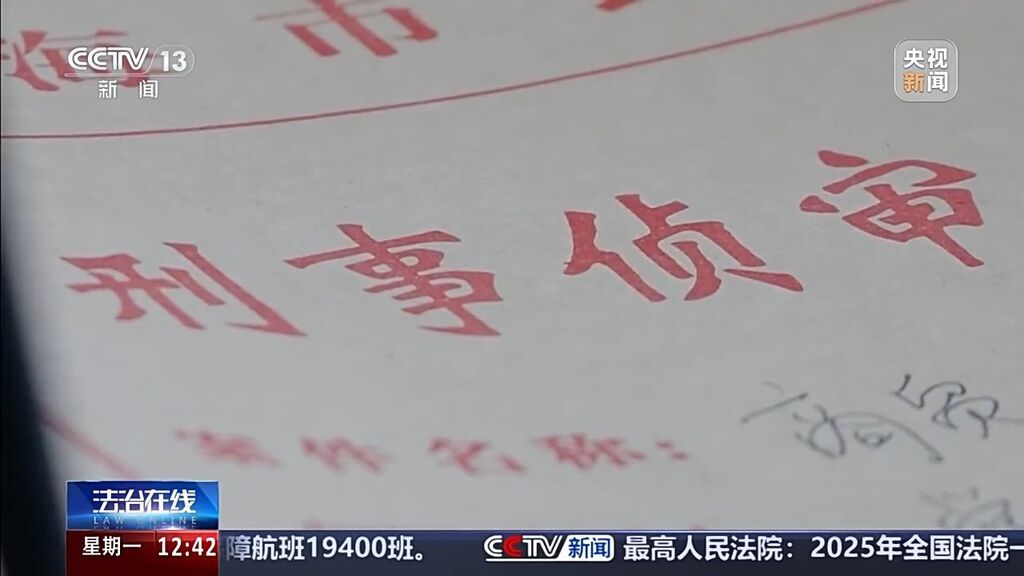 海市
CCTV 13
新闻
央视
新闻
刑事侦审
案件名称：
法治在线
LAW ONLINE
星期一 12:42 障航班19400班。 CCTV新闻 最高人民法院：2025年全国法院一